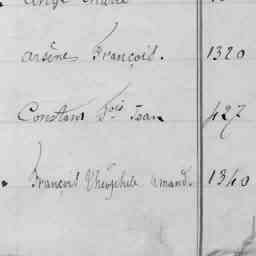 Ange Marie
Arsène François. 1320
Constant fois Jean 427
François Théophile Amand. 1340